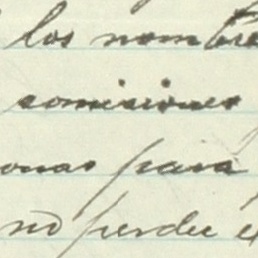 los nombre
comisiones
onas para
no perder e